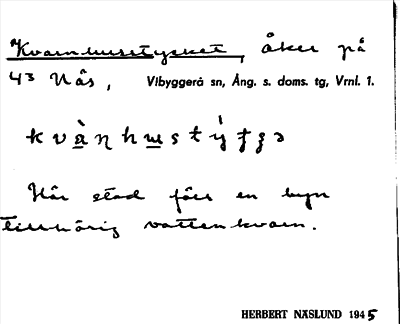 Kvarnhusetycket, åker på
43 Nås, Vibyggerå sn, Ång. s. doms. tg, Vrnl. 1.
Här stod förr en byn
tillhörig vattenkvarn.
HERBERT NÄSLUND 1945